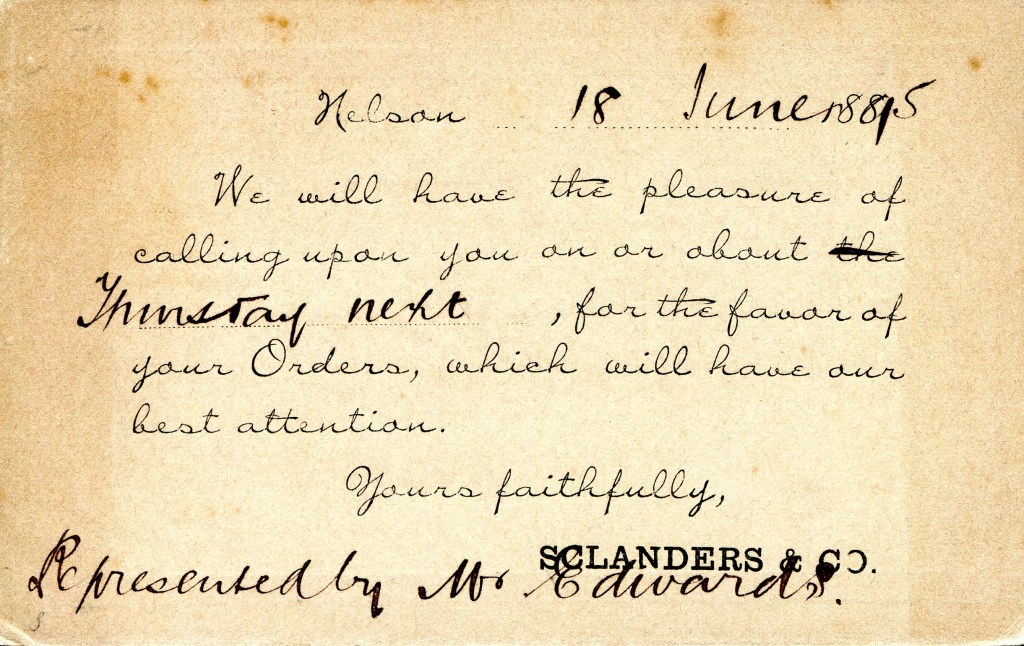 Nelson 18 June 1895
We will have the pleasure of
calling upon you on or about the
Thursday next, for the favor of
your Orders, which will have our
best attention.
Yours faithfully,
SCLANDERS & CO.
Represented by Mr Edwards.